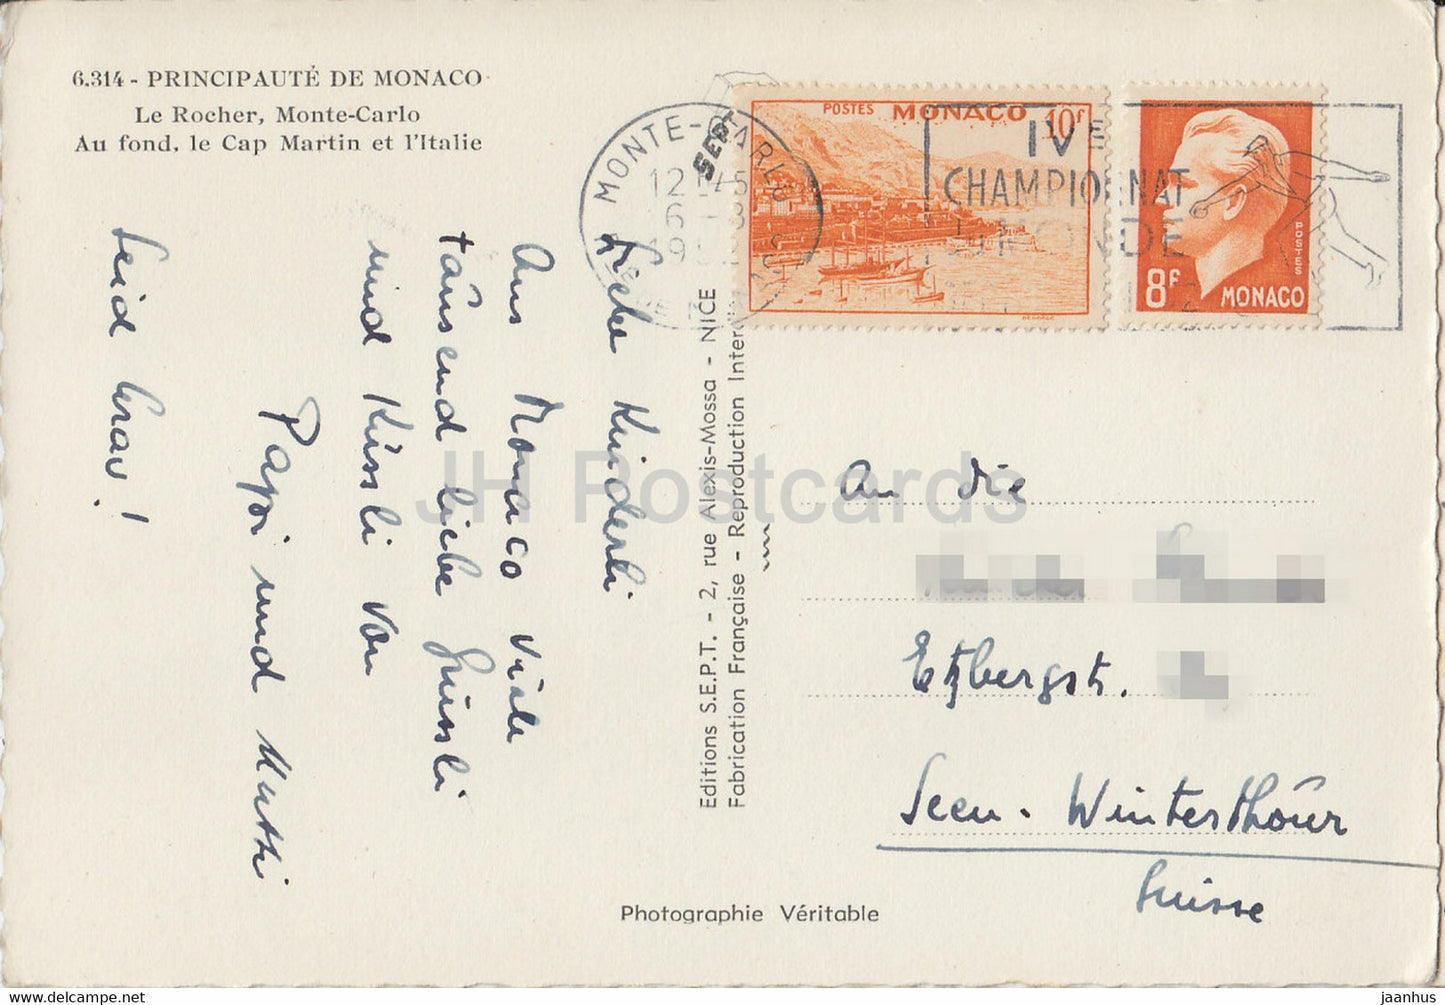 6.314 - PRINCIPAUTÉ DE MONACO
Le Rocher, Monte-Carlo
Au fond, le Cap Martin et l'Italie
Liebe Kinderli
Aus Monaco viele
tausend liebe Grüssli
und Küssli von
Papi und Mutti
Seid brav!
Editions S.E.P.T. - 2, rue Alexis-Mossa - NICE
Fabrication Française - Reproduction Inter
MONTE-CARLO
SEPT
12 45
POSTES MONACO 10f
IVE
CHAMPIONNAT
MONDE
POSTES
8F MONACO
An die
Etzbergstr.
Seen - Winterthur
Suisse
Photographie Véritable
JH Postcards
https://www.delcampe.net
jaanhus